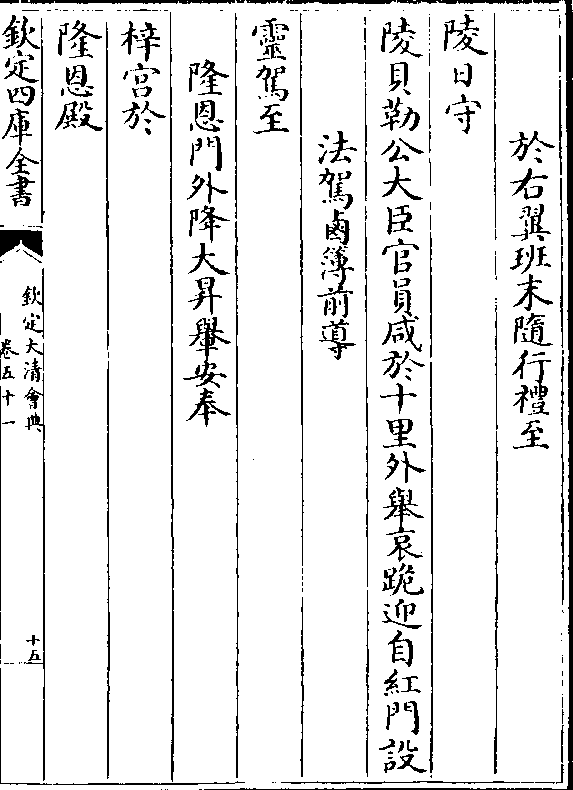 於右翼班末隨行禮至
陵日守
陵貝勒公大臣官員咸於十里外舉哀跪迎自紅門設
法駕鹵簿前導
靈駕至
隆恩門外降大昇轝安奉
梓宫於
隆恩殿
欽定四庫全書
欽定大清會典
卷五十一
十五